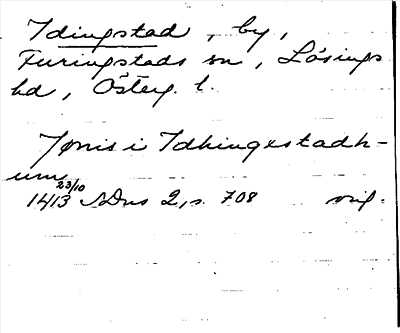 Idingstad, by,
Furingstads sn, Lösings
hd, Österg. l.
Jønis i Idhingestadh-
um
23/10
1413 SDns 2, s. 708 orig.